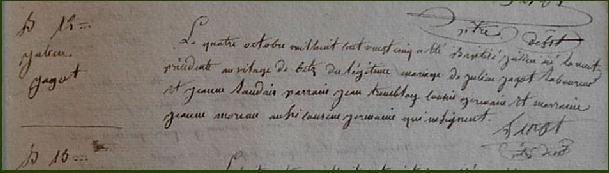 B 12
julien
jagot
Le quatre octobre mil huit cent vingt cinq a été baptisé julien né la nuit
précédente au vilage de du légitime mariage de julien jagot laboureur
et jeanne parrain jean cousin germain et marraine
jeanne moreau aussi cousine germaine qui ne signent
B 13